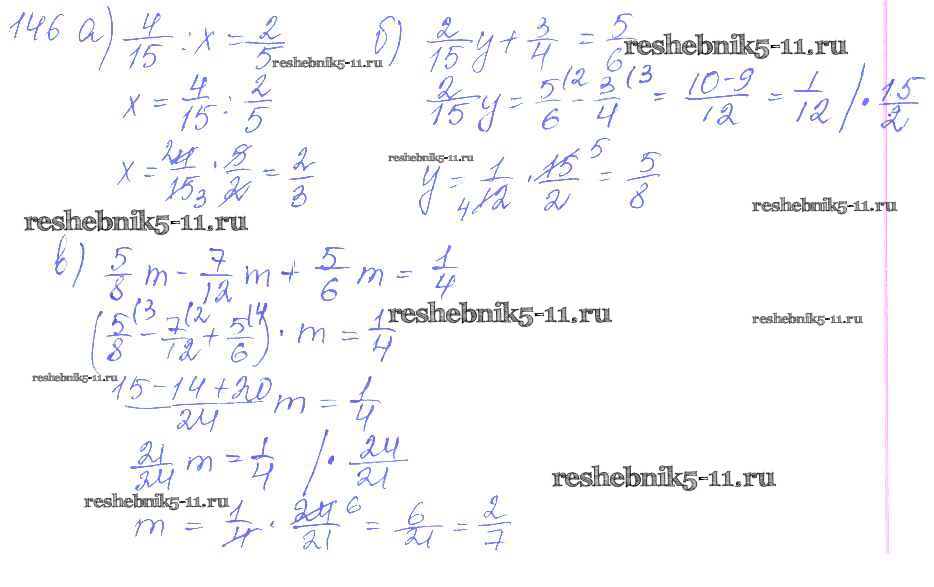 146 а) 4/15 : x = 2/5
x = 4/15 : 2/5
x = 4/15 · 5/2 = 2/3
б) 2/15 y + 3/4 = 5/6
2/15 y = 5/6 (2 - 3/4 (3 = 10-9/12 = 1/12 / · 15/2
y = 1/12 4 · 15/2 5 = 5/8
в) 5/8 m - 7/12 m + 5/6 m = 1/4
(5/8 (3 - 7/12 (2 + 5/6 (4) · m = 1/4
15-14+20/24 m = 1/4
21/24 m = 1/4 / · 24/21
m = 1/4 · 24/21 6 = 6/21 = 2/7
reshebnik5-11.ru
reshebnik5-11.ru
reshebnik5-11.ru
reshebnik5-11.ru
reshebnik5-11.ru
reshebnik5-11.ru
reshebnik5-11.ru
reshebnik5-11.ru
reshebnik5-11.ru
reshebnik5-11.ru